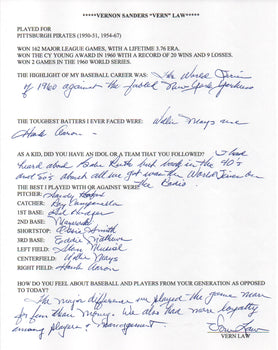 *****VERNON SANDERS "VERN" LAW*****
PLAYED FOR
PITTSBURGH PIRATES (1950-51, 1954-67)
WON 162 MAJOR LEAGUE GAMES, WITH A LIFETIME 3.76 ERA.
WON THE CY YOUNG AWARD IN 1960 WITH A RECORD OF 20 WINS AND 9 LOSSES.
WON 2 GAMES IN THE 1960 WORLD SERIES.
THE HIGHLIGHT OF MY BASEBALL CAREER WAS: The World Series
of 1960 against the fabled New York Yankees
THE TOUGHEST BATTERS I EVER FACED WERE: Willie Mays and
Hank Aaron.
AS A KID, DID YOU HAVE AN IDOL OR A TEAM THAT YOU FOLLOWED? I had
heard about Babe Ruth but back in the 40's
and 50's about all we got was the World Series on
the Radio.
THE BEST I PLAYED WITH OR AGAINST WERE:
PITCHER: Sandy Koufax
CATCHER: Roy Campanella
1ST BASE:
2ND BASE:
SHORTSTOP: Ozzie Smith
3RD BASE: Eddie Mathews
LEFT FIELD: Stan Musial
CENTERFIELD: Willie Mays
RIGHT FIELD: Hank Aaron
HOW DO YOU FEEL ABOUT BASEBALL AND PLAYERS FROM YOUR GENERATION AS OPPOSED
TO TODAY?
The major difference we played the game more
for fun than money. We also had more loyalty
among players & management.
Vern Law
VERN LAW